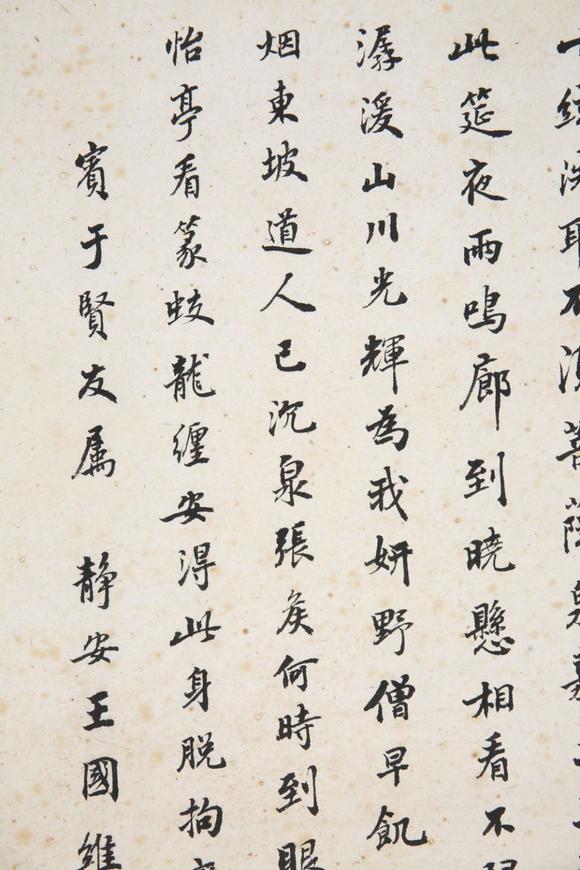 洗耳不須菩薩泉嘉
此筵夜雨鳴廊到曉懸相看不
潺湲山川光輝為我妍野僧早飢
烟東坡道人已沉泉張侯何時到眼
怡亭看篆蛟龍纏安得此身脫拘
賓于賢友属 静安王國維